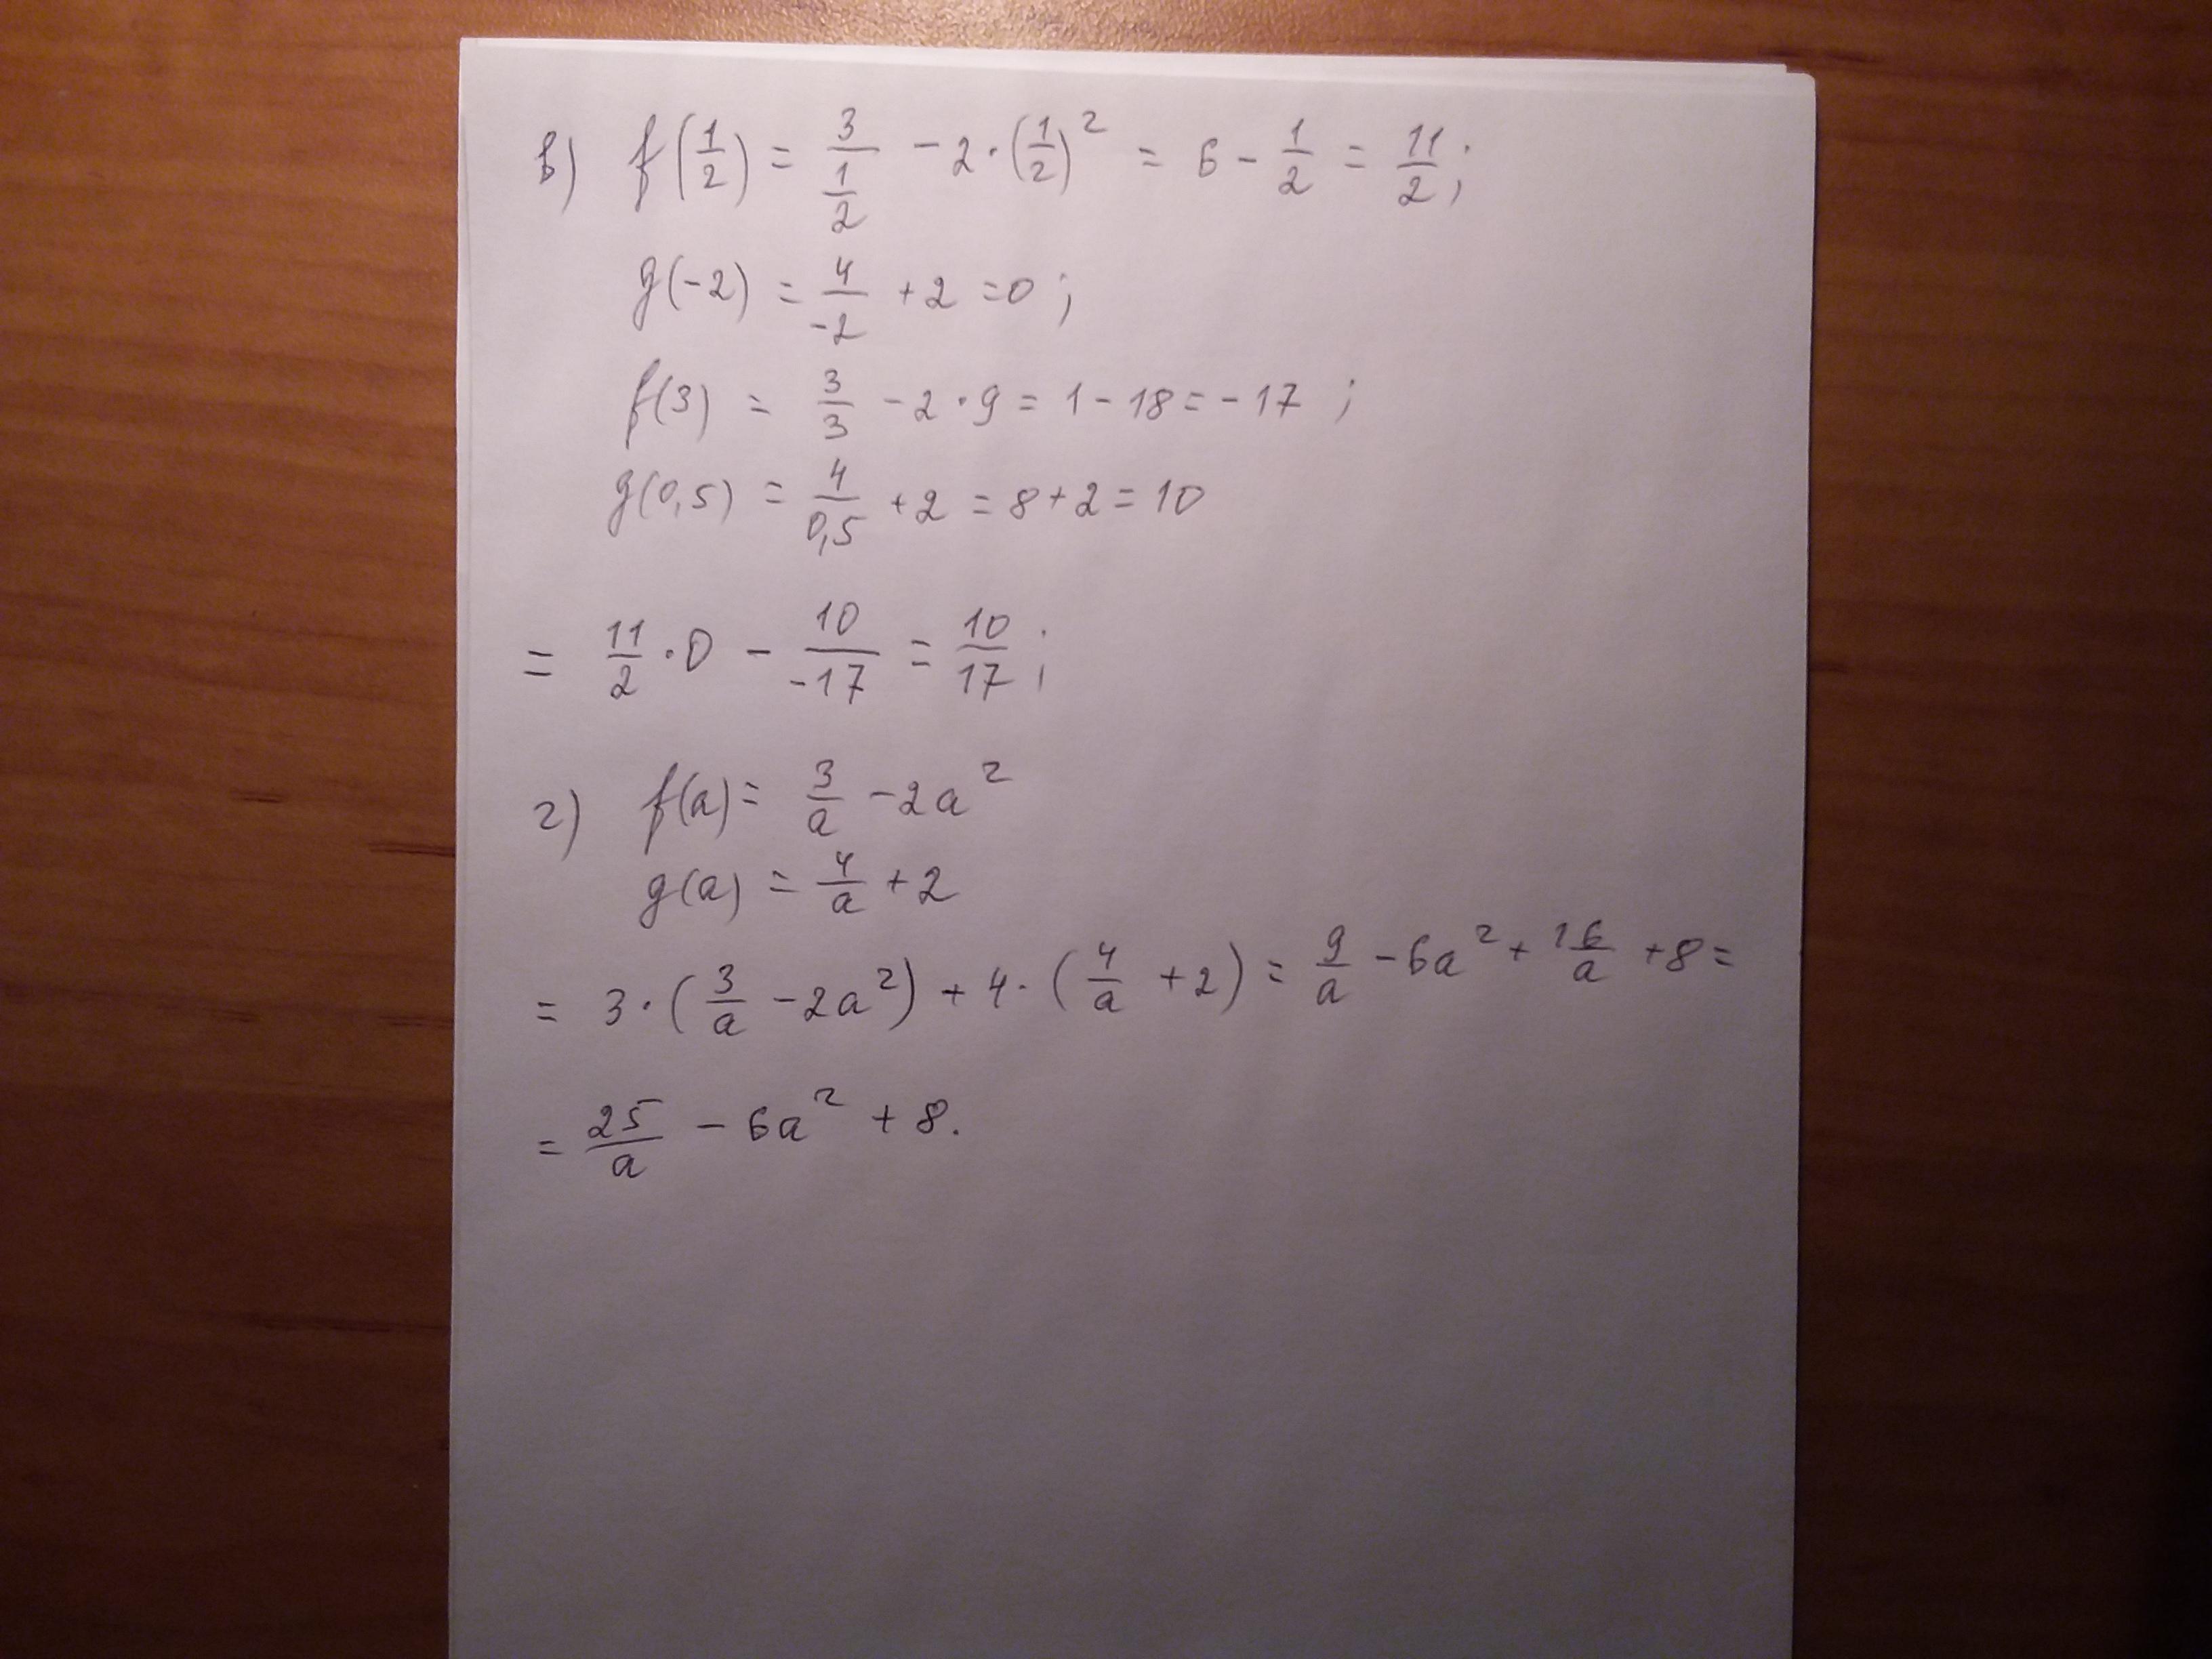 в) f(1/2) = 3/(1/2) - 2·(1/2)² = 6 - 1/2 = 11/2;
g(-2) = 4/-2 + 2 = 0;
f(3) = 3/3 - 2·9 = 1 - 18 = -17;
g(0,5) = 4/0,5 + 2 = 8 + 2 = 10
= 11/2·0 - 10/-17 = 10/17;
г) f(a) = 3/a - 2a²
g(a) = 4/a + 2
= 3·(3/a - 2a²) + 4·(4/a + 2) = 9/a - 6a² + 16/a + 8 =
= 25/a - 6a² + 8.